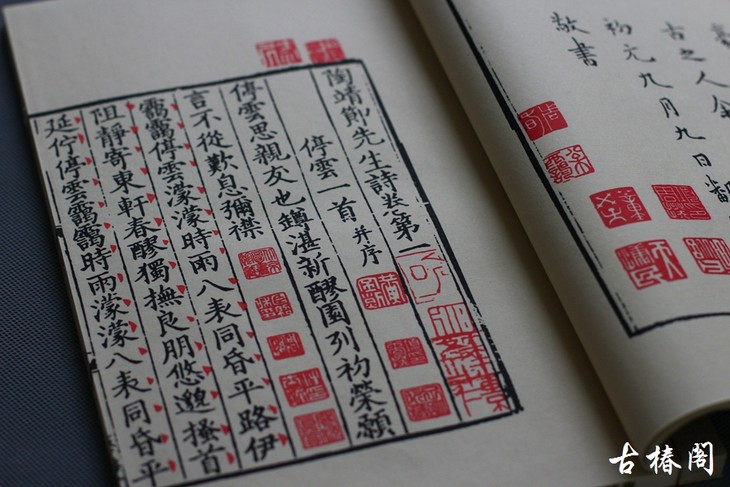 古之人
初元九月九日鄱
敬書
陶靖節先生詩卷第一
停雲一首 并序
停雲思親友也罇湛新醪園列初榮願
言不從歎息彌襟
靄靄停雲濛濛時雨八表同昏平路伊
阻靜寄東軒春醪獨撫良朋悠邈搔首
延佇停雲靄靄時雨濛濛八表同昏平
古椿閣